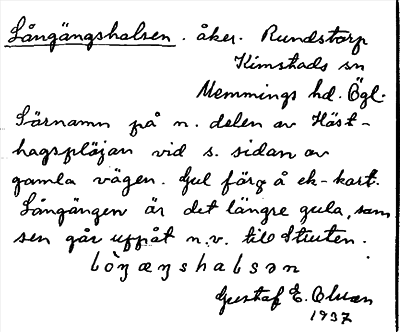 Långängshalsen. åker. Rundstorp
Kimstads sn
Memmings hd. Ögl.
Särnamn på n. delen av Häst-
hagsplöjan vid s. sidan av
gamla vägen. Gul färg å ek-kart.
Långängen är det längre gula, som
sen går uppåt n.v. till Struten.
Gustaf E. Olsson
1937